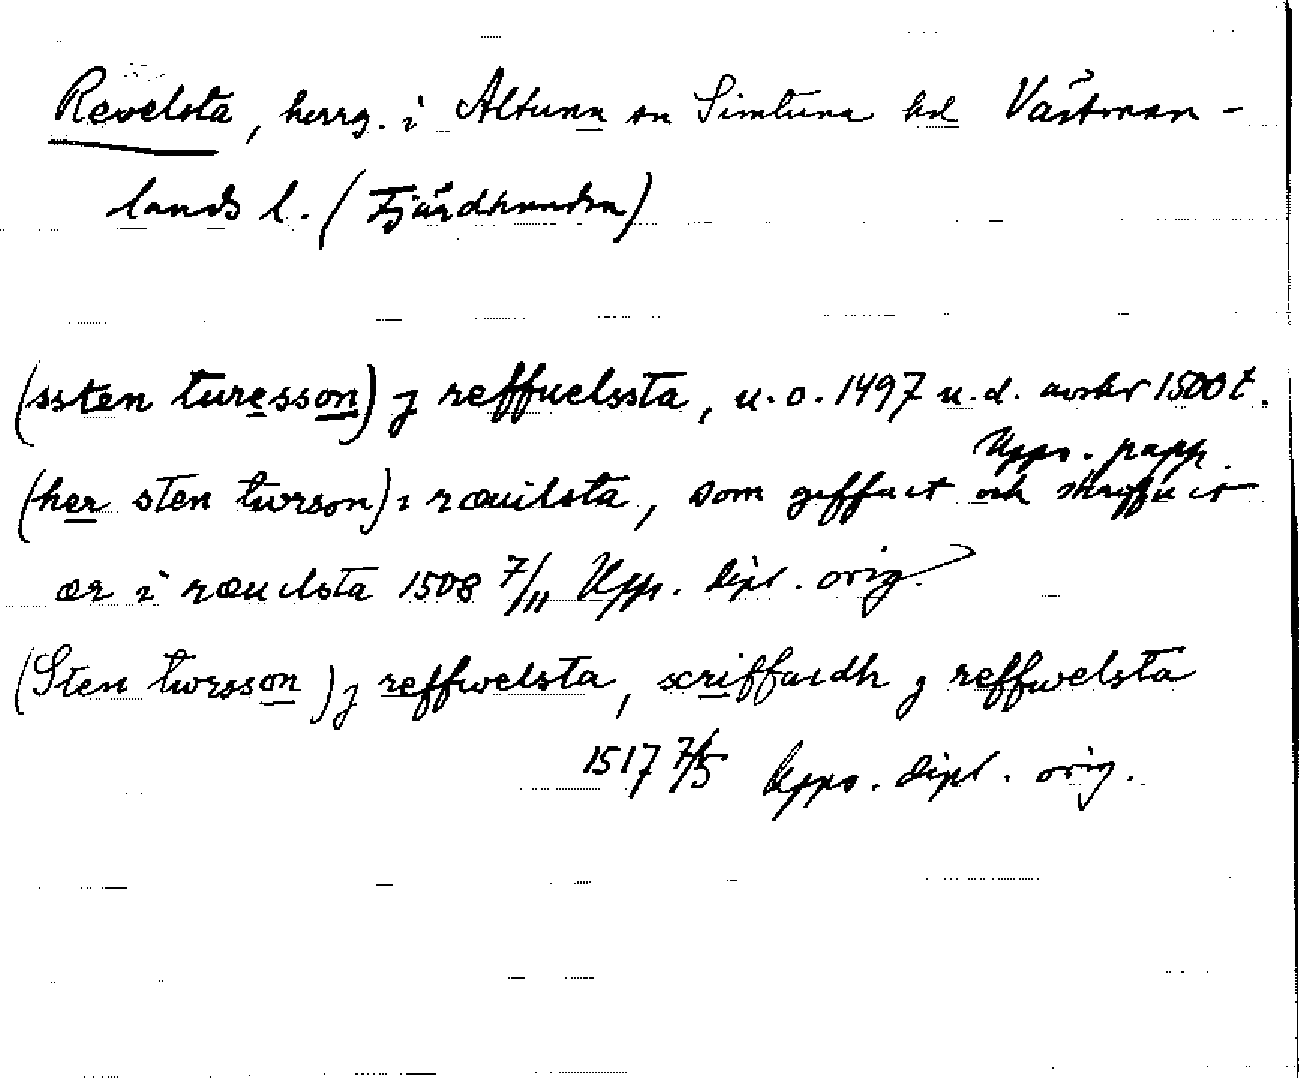 Revelsta, herrg. i Altuna sn Simtuna hd Västman-
lands l. (Fjärdhundra)
(ssten turesson) j reffuelssta, u.o. 1497 u.d. avskr 1500 t.
Upps. papp.
(her sten turson) i ræuilsta, som geffuet och skreffuet
ær i ræuelsta 1508 7/11 Upps. dipl. orig.
(Sten turssson) j reffwelsta, scriffuidh j reffwelsta
1517 7/5 Upps. dipl. orig.